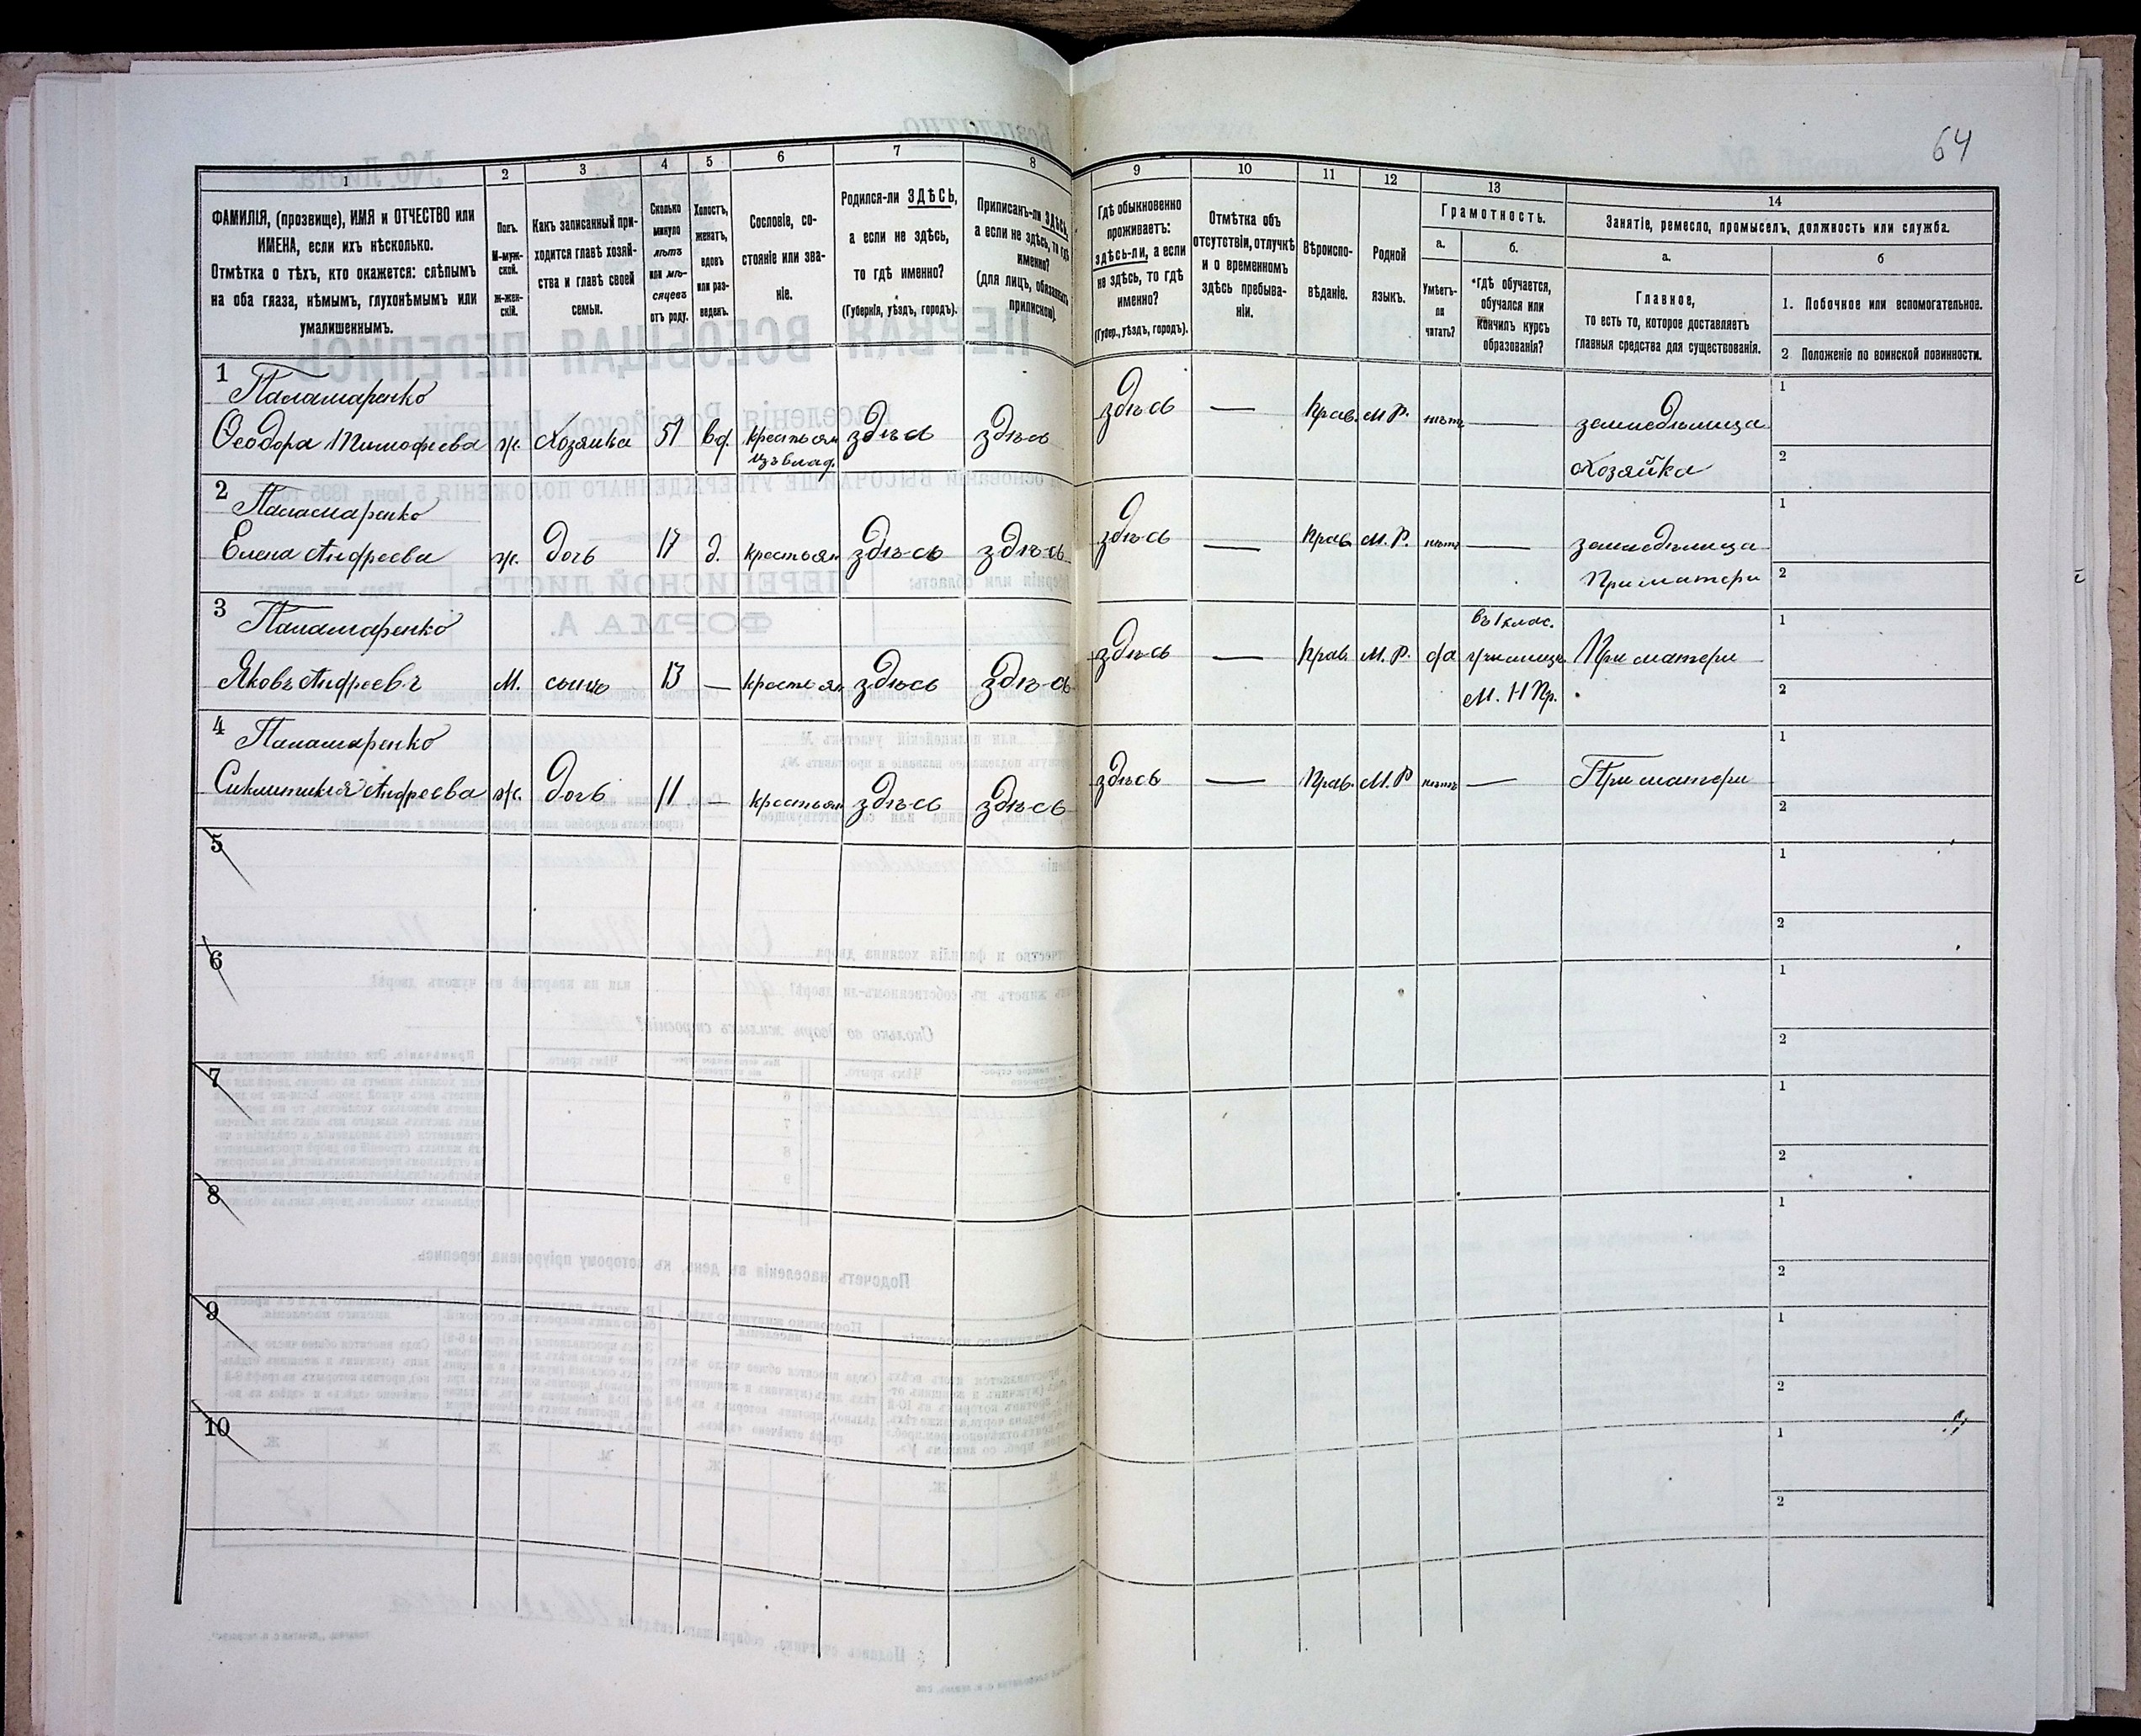 64
1
2
3
4
5
6
7
8
9
10
11
12
13
14
ФАМИЛІЯ, (прозвище), ИМЯ и ОТЧЕСТВО или
ИМЕНА, если ихъ нѣсколько.
Отмѣтка о тѣхъ, кто окажется: слѣпымъ
на оба глаза, нѣмымъ, глухонѣмымъ или
умалишеннымъ.
Полъ.
М-муж-
ской.
Ж-жен-
скій.
Какъ записанный при-
ходится главѣ хозяй-
ства и главѣ своей
семьи.
Сколько
минуло
лѣтъ
или мѣ-
сяцевъ
отъ роду.
Холостъ,
женатъ,
вдовъ
или раз-
веденъ.
Сословіе, со-
стояніе или зва-
ніе.
Родился-ли ЗДѢСЬ,
а если не здѣсь,
то гдѣ именно?
(Губернія, уѣздъ, городъ).
Приписанъ-ли ЗДѢСЬ,
а если не здѣсь, то гдѣ
именно?
(для лицъ, обязанныхъ
припискою).
Гдѣ обыкновенно
проживаетъ:
здѣсь-ли, а если
не здѣсь, то гдѣ
именно?
(Губер., уѣздъ, городъ).
Отмѣтка объ
отсутствіи, отлучкѣ
и о временномъ
здѣсь пребыва-
ніи.
Вѣроиспо-
вѣданіе.
Родной
языкъ.
Грамотность.
а.
б.
Умѣетъ-
ли
читать?
*гдѣ обучается,
обучался или
кончилъ курсъ
образованія?
Занятіе, ремесло, промыселъ, должность или служба.
а.
б
Главное,
то есть то, которое доставляетъ
главныя средства для существованія.
1. Побочное или вспомогательное.
2 Положеніе по воинской повинности.
1 Паламаренко
Ѳеодора Тимофеева ж. Хозяйка 51 вд. крестьян здѣсь здѣсь здѣсь — Прав. М. Р. нѣтъ — земледѣлица 1
изъ влад. Хозяйка 2
2 Паламаренко
Елена Андреева ж. дочь 17 д. крестьян здѣсь здѣсь здѣсь — Прав. М. Р. нѣтъ — земледѣлица 1
При матери 2
3 Паламаренко въ 1 клас. 1
Яковъ Андреевъ М. сынъ 13 — крестьян здѣсь здѣсь здѣсь — Прав. М. Р. да училищѣ При матери
М. Н Пр. 2
4 Паламаренко 1
Андреева ж. дочь 11 — крестьян здѣсь здѣсь здѣсь — Прав. М. Р нѣтъ — При матери
2
5
1
2
6
1
2
7
1
2
8
1
2
9
1
2
10
1
2